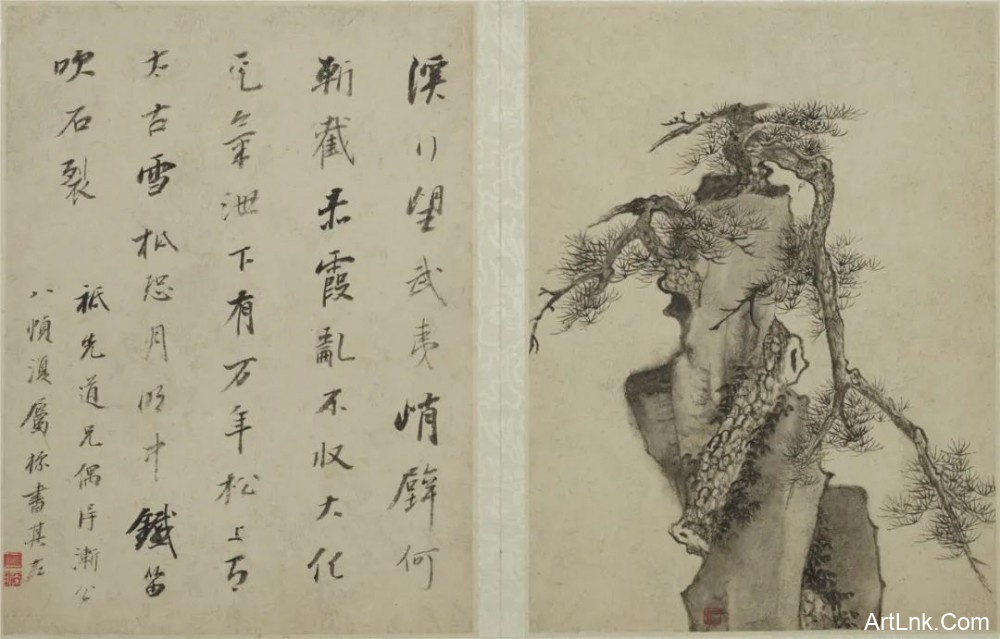 溪行望武夷峭壁何
斬截赤霞亂不收大化
元氣泄下有万年松上有
太古雪秪恐月明中鐵笛
吹石裂
祗先道兄偶得漸公
八幀屬書其左
ArtLnk.Com